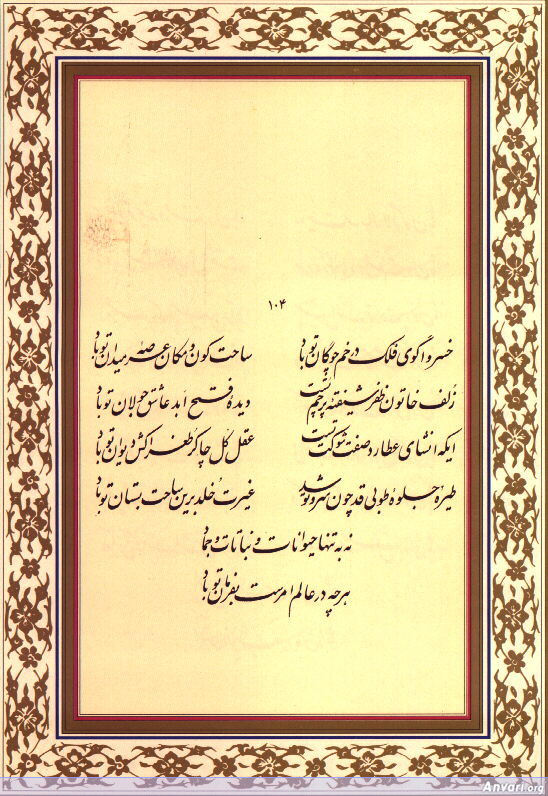 ۱۰۴
خسروا گوی فلک در خم چوگان تو باد ساحت کون و مکان عرصه میدان تو باد
زلف خاتون ظفر شیفته پرچم تست دیده فتح ابد عاشق جولان تو باد
ایکه انشای عطارد صفت شوکت تست عقل کل چاکر طغراکش دیوان تو باد
طیره جلوه طوبی قد چون سرو تو شد غیرت خلد برین ساحت بستان تو باد
نه به تنها حیوانات و نباتات و جماد
هرچه در عالم امرست بفرمان تو باد
Anvari.org